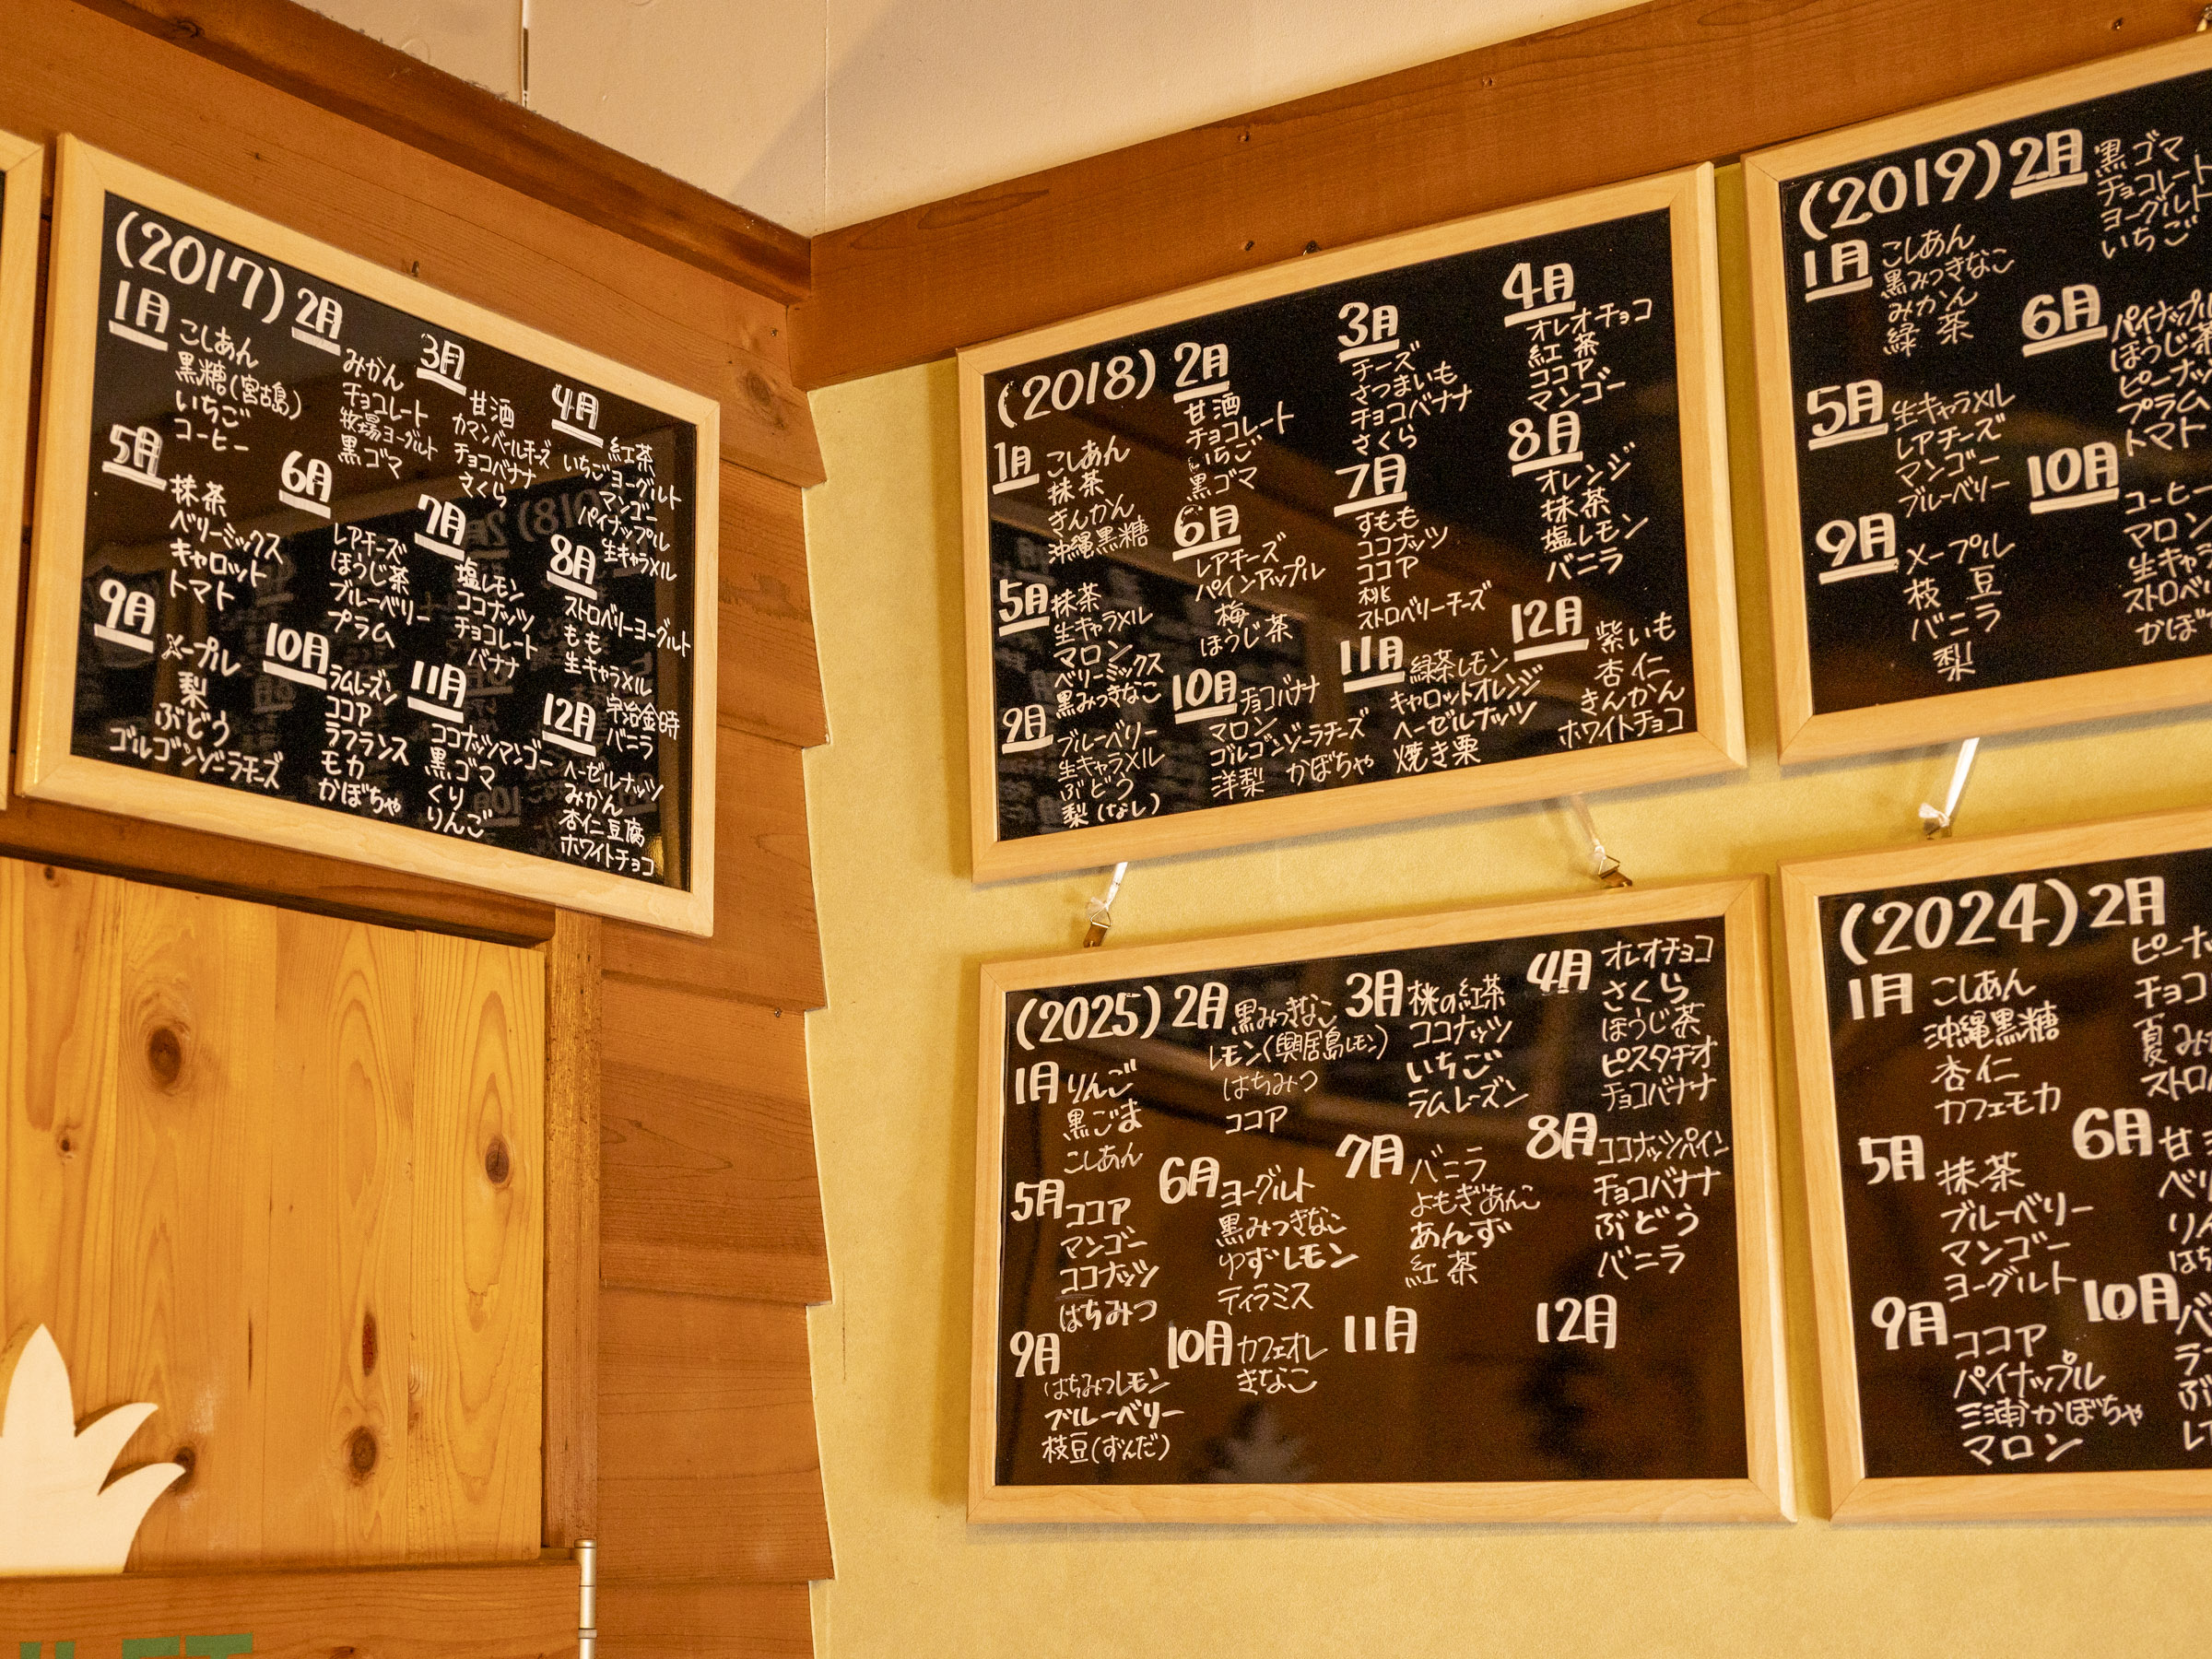 (2017)
1月
こしあん
黒糖(宮古島)
いちご
コーヒー
2月
みかん
チョコレート
牧場ヨーグルト
黒ゴマ
3月
甘酒
カマンベールチーズ
チョコバナナ
さくら
4月
紅茶
いちごヨーグルト
マンゴー
パイナップル
生キャラメル
5月
抹茶
ベリーミックス
キャロット
トマト
6月
レアチーズ
ほうじ茶
ブルーベリー
プラム
7月
塩レモン
ココナッツ
チョコレート
バナナ
8月
ストロベリーヨーグルト
もも
生キャラメル
宇治金時
バニラ
9月
メープル
梨
ぶどう
ゴルゴンゾーラチーズ
10月
ラムレーズン
ココア
ラフランス
モカ
かぼちゃ
11月
ココナッツマンゴー
黒ゴマ
くり
りんご
12月
ヘーゼルナッツ
みかん
杏仁豆腐
ホワイトチョコ
(2018)
1月
こしあん
抹茶
きんかん
沖縄黒糖
2月
甘酒
チョコレート
いちご
黒ゴマ
3月
チーズ
さつまいも
チョコバナナ
さくら
4月
オレオチョコ
紅茶
ココア
マンゴー
5月
抹茶
生キャラメル
マロン
ベリーミックス
黒みつきなこ
6月
レアチーズ
パインアップル
梅
ほうじ茶
7月
すもも
ココナッツ
ココア
桃
ストロベリーチーズ
8月
オレンジ
抹茶
塩レモン
バニラ
9月
ブルーベリー
生キャラメル
ぶどう
梨(なし)
10月
チョコバナナ
マロン
ゴルゴンゾーラチーズ
洋梨 かぼちゃ
11月
緑茶レモン
キャロットオレンジ
ヘーゼルナッツ
焼き栗
12月
紫いも
杏仁
きんかん
ホワイトチョコ
(2019)
1月
こしあん
黒みつきなこ
みかん
緑茶
2月
黒ゴマ
チョコレート
ヨーグルト
いちご
5月
生キャラメル
レアチーズ
マンゴー
ブルーベリー
6月
パイナップル
ほうじ茶
ピーナッ
プラム
トマト
9月
メープル
枝豆
バニラ
梨
10月
コーヒー
マロン
生キャラ
ストロベ
かぼ
(2025)
1月
りんご
黒ごま
こしあん
2月
黒みつきなこ
レモン(興居島レモン)
はちみつ
ココア
3月
桃の紅茶
ココナッツ
いちご
ラムレーズン
4月
オレオチョコ
さくら
ほうじ茶
ピスタチオ
チョコバナナ
5月
ココア
マンゴー
ココナッツ
はちみつ
6月
ヨーグルト
黒みつきなこ
ゆずレモン
ティラミス
7月
バニラ
よもぎあんこ
あんず
紅茶
8月
ココナッツパイン
チョコバナナ
ぶどう
バニラ
9月
はちみつレモン
ブルーベリー
枝豆(ずんだ)
10月
カフェオレ
きなこ
11月
12月
(2024)
1月
こしあん
沖縄黒糖
杏仁
カフェモカ
2月
ピーナ
チョコ
夏み
ストロ
5月
抹茶
ブルーベリー
マンゴー
ヨーグルト
6月
甘
ベリ
りん
はち
9月
ココア
パイナップル
三浦かぼちゃ
マロン
10月
バ
ラ
ぶ
レ